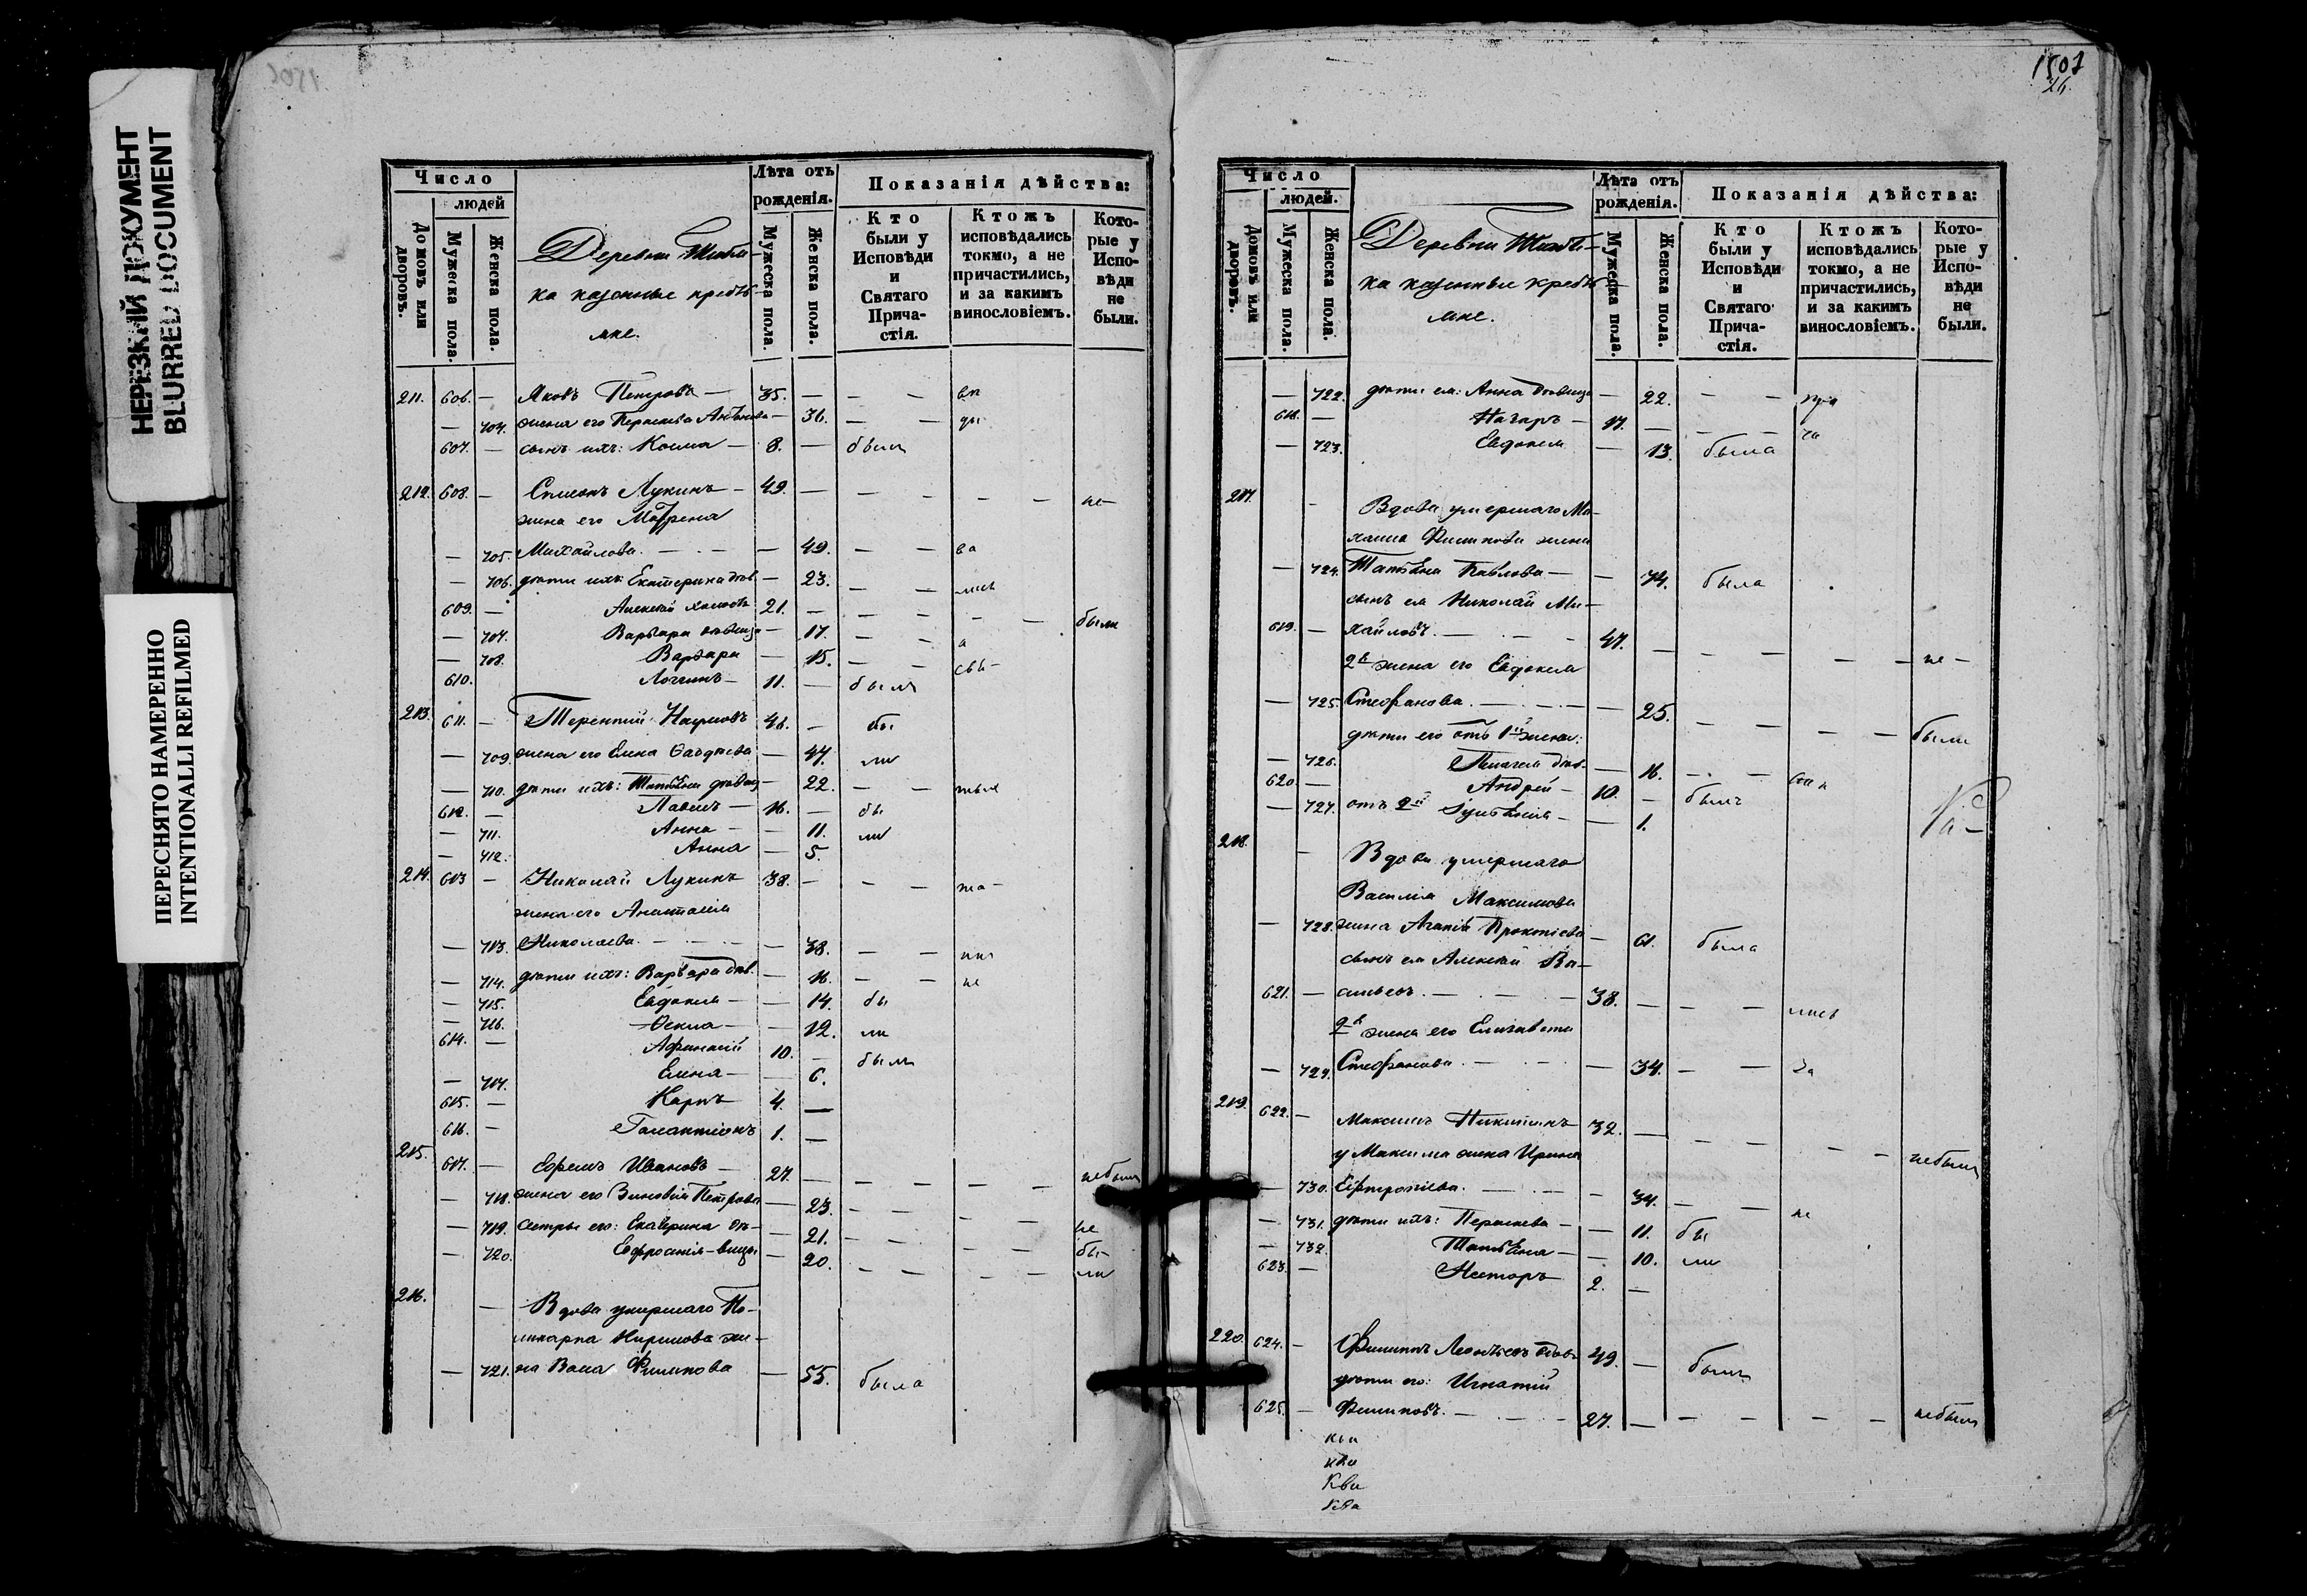 НЕРЕЗКИЙ ДОКУМЕНТ
BLURRED DOCUMENT
ПЕРЕСНЯТО НАМЕРЕННО
INTENTIONALLI REFILMED
Число
людей
Домовъ или дворовъ.
Мужеска пола.
Женска пола.
Деревни
ка казенные крестья-
мне.
Лѣта отъ рожденія.
Мужеска пола.
Женска пола.
Показанія дѣйства:
Кто были у Исповѣди и Святаго Прича-стія.
Ктожъ исповѣдались токмо, а не причастились, и за какимъ винословіемъ.
Кото-рые у Испо-вѣди не были.
211. 606. — Яковъ Петровъ — 35. — — —
— 704. жена его Параскева Антонова — 36. — —
607. — сынъ ихъ: Косма — 8. — былъ
212. 608. — Симеонъ Лукинъ — 49. — — — — — не—
жена его Матрена
— 705. Михайлова. — — 49. — —
— 706. дѣти ихъ: Екатерина дѣв. — 23. — —
609. — Алексѣй 21. — — — — — были
— 707. Варвара дѣвица — 17. — —
— 708. Варвара — 15. — —
610. Логгинъ — 11. — былъ
213. 611. — Терентій Наумовъ 46. — бы
— 709. жена его Елена — 47. ли
— 710. дѣти ихъ: Татьяна дѣвица — 22. — —
612. — Павелъ — 16. — бы
— 711. Анна — — 11. ли
— 712. Анна — 5.
214. 613 — Николай Лукинъ 38. — — —
жена его Анастасія
— 713. Николаева. — — 38. — —
— 714. дѣти ихъ: Варвара дѣв. — 16. — — не
— 715. Евдокія — — 14. бы
— 716. Ѳекла — — 12. ли
614. — Афанасій 10. — былъ
— 717. Елена — — 6.
615. — Карпъ 4. —
616. — Галактіонъ 1. —
215. 617. — Ефремъ Ивановъ — 27. — — — — — небылъ
— 718. жена его Зиновія Петрова — 23. — — — —
— 719. сестры его: Екатерина дѣ— — 21. — — — — не
— 720. Евфросинія — вицы — 20. — — — — бы—
ли
216. — Вдова умершаго По-
ликарпа Кирилова же-
— 721. на Васса Филипова — 55. была
1507
26.
Число
людей.
Домовъ или дворовъ.
Мужеска пола.
Женска пола.
Деревни
ка казенные крестья-
мне.
Лѣта отъ рожденія.
Мужеска пола.
Женска пола.
Показанія дѣйства:
Кто были у Исповѣди и Святаго Прича-стія.
Ктожъ исповѣдались токмо, а не причастились, и за какимъ винословіемъ.
Кото-рые у Испо-вѣди не были.
— 722. дѣти ея: Анна дѣвица — 22. — —
618. — Назаръ — 17. — — —
— 723. Евдокія — 13. была
217. — Вдова умершаго Ми-
хаила Филипова жена
— 724. Татьяна Павлова — — 74. была
сынъ ея Николай Ми-
619. — хайловъ. — — 47. — — — — — не —
2я жена его Евдокія
— 725. Стефанова. — — 25. — — — — были
дѣти его отъ 1й жены:
— 726. Пелагея дѣв. — 16. — —
620. — Андрей — 10. — былъ
— 727. отъ 2й — 1.
218. — Вдова умершаго
Василія Максимова
— 728. жена Агафія Прокопіева — 61. была
сынъ ея Алексѣй Ва-
621. — сильевъ. — — 38. — — —
2я жена его Елизавета
— 729. Стефанова. — — 34. — —
219. 622. — Максимъ Никитинъ 32. — — — — — небылъ
у Максима жена Ирина
— 730. Евтропіева. — — 34. — — не
— 731. дѣти ихъ: Параскева — — 11. бы
— 732. Татьяна — — 10. ли
623. — Несторъ 2. —
220. 624. — Филиппъ Леонтьевъ вдовъ 49. — былъ
дѣти его: Игнатій
625. — Филиповъ. — — 27. — — — — — небылъ